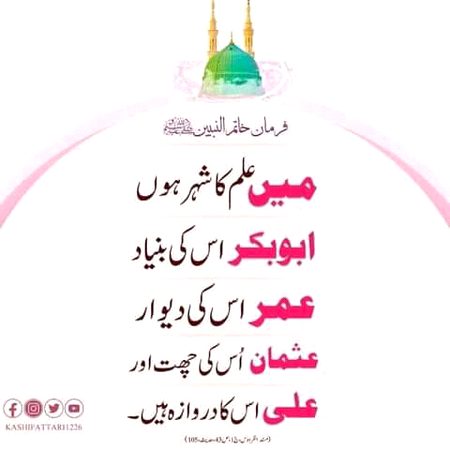 فرمان خاتم النبیین ﷺ
میں علم کا شہر ہوں
ابوبکر اس کی بنیاد
عمر اس کی دیوار
عثمان اُس کی چھت اور
علی اس کا دروازہ ہیں۔
(مسند الفردوس، ج1، ص43، حدیث:105)
KASHIFATTARI1226